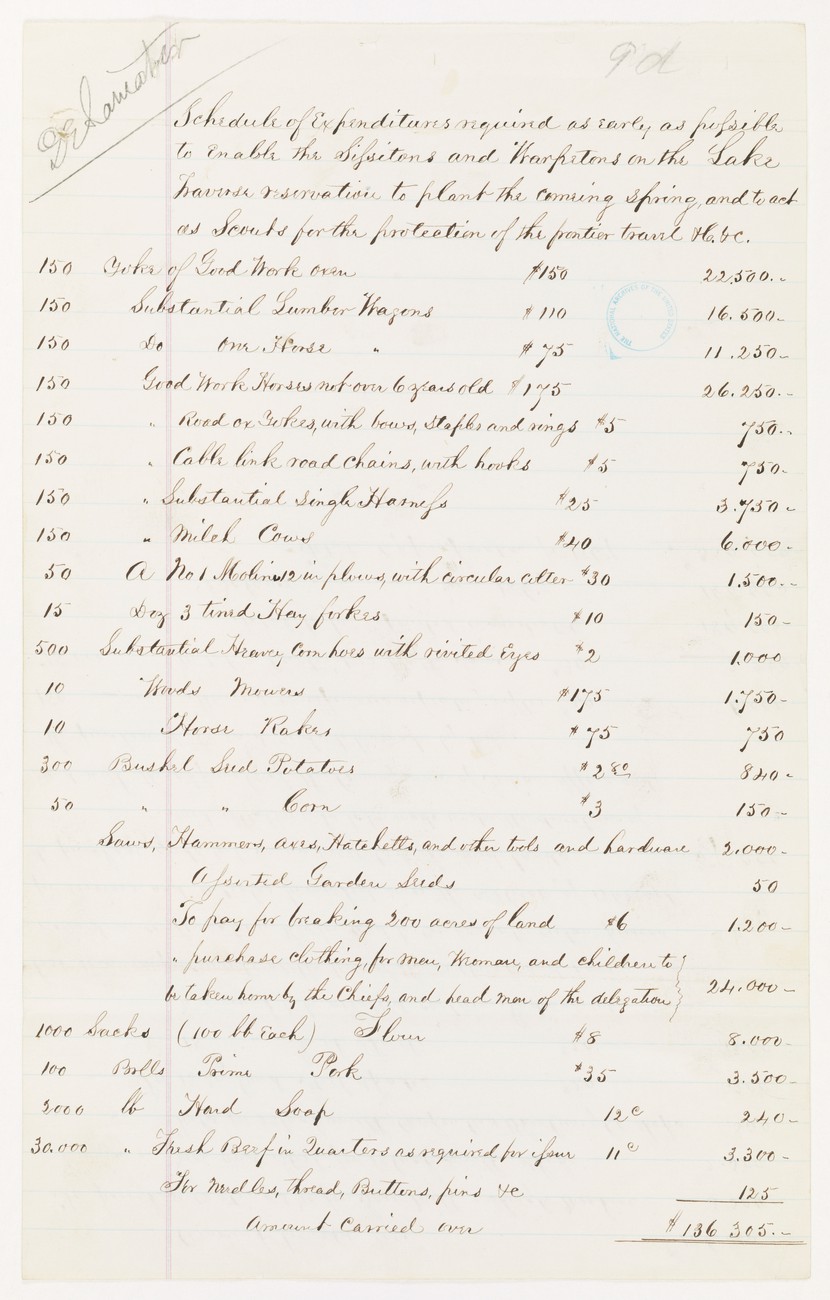 Delamater
9 d
Schedule of Expenditures required as early as possible
to enable the Sissitons and Warpetons on the Lake
Traverse reservation to plant the comeing Spring, and to act
as Scouts for the protection of the frontier travel &c. &c.
150 Yoke of Good Work oxen $150 22.500.-
150 Substantial Lumber Wagons $110 16.500-
150 Do One Horse " $75 11.250-
150 Good Work Horses not over 6 years old $175 26.250.-
150 " Road ox Yokes, with bows, staples and rings $5 750.-
150 " Cable link road chains, with hooks $5 750-
150 " Substantial Single Harness $25 3.750-
150 " Milch Cows $40 6.000-
50 A No 1 Moline 12 in plows, with circular colter $30 1.500.-
15 Doz 3 tined Hay forkes $10 150-
500 Substantial Heavey Corn hoes with rivited Eyes $2 1.000
10 Woods Mowers $175 1.750-
10 Horse Rakes $75 750
300 Bushel Seed Potatoes $2 80 840-
50 " " Corn $3 150-
Saws, Hammers, axes, Hatchetts, and other tools and hardware 2.000-
Assorted Garden Seeds 50
To pay for breaking 200 acres of land $6 1.200-
" purchase clothing, for men, Woman, and children to
be taken home by the Chiefs, and head men of the delegation 24.000-
1000 Sacks (100 lb Each) Flour $8 8.000-
100 Brlls Prime Pork $35 3.500-
2000 lb Hard Soap 12c 240-
30.000 " Fresh Beef in Quarters as required for issue 11c 3.300-
For Needles, thread, Buttons, pins &c 125
Amount Carried over $136 305.-
THE NATIONAL ARCHIVES OF THE UNITED STATES